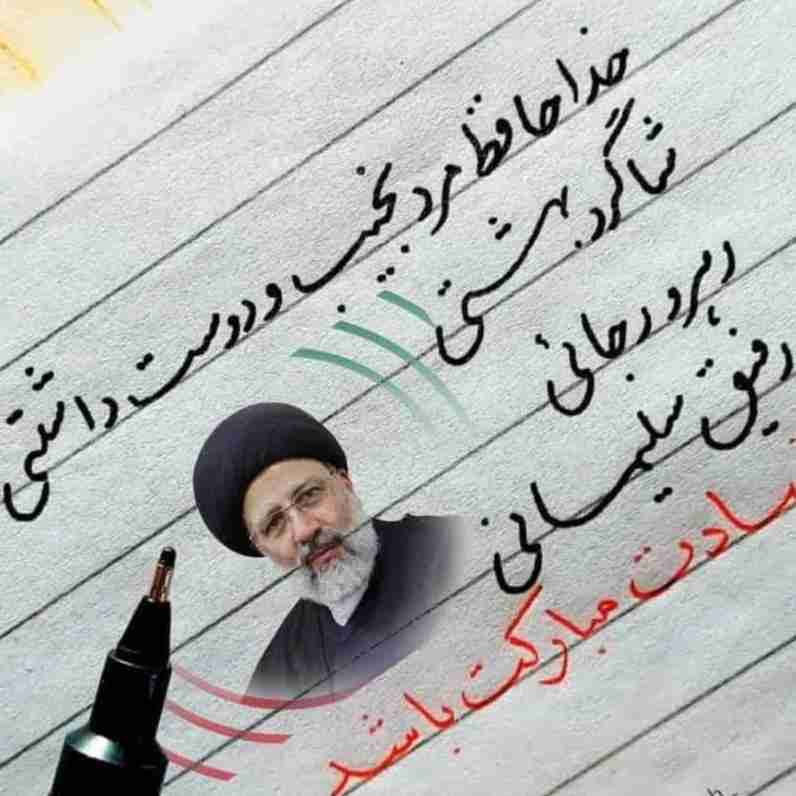 خداحافظ مرد نجیب و دوست داشتنی
شاگرد بهشتی
رهرو رجائی
رفیق سلیمانی
مبارکت باشد